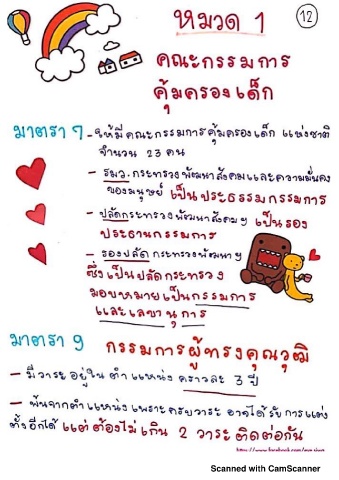 หมวด 1
12
คณะกรรมการ
คุ้มครองเด็ก
มาตรา 7 - ให้มีคณะกรรมการคุ้มครองเด็ก แห่งชาติ
จำนวน 23 คน
- รมว. กระทรวงพัฒนาสังคมและความมั่นคง
ของมนุษย์ เป็นประธรรมกรรมการ
- ปลัดกระทรวงพัฒนาสังคมฯ เป็นรอง
ประธานกรรมการ
- รองปลัดกระทรวงพัฒนาฯ
ซึ่งเป็นปลัดกระทรวง
มอบหมายเป็นกรรมการ
และเลขานุการ
มาตรา 9 กรรมการผู้ทรงคุณวุฒิ
- มีวาระอยู่ในตำแหน่ง คราวละ 3 ปี
- พ้นจากตำแหน่งเพราะครบวาระ อาจได้รับการแต่ง
ตั้งอีกได้ แต่ต้องไม่เกิน 2 วาระติดต่อกัน
Scanned with CamScanner